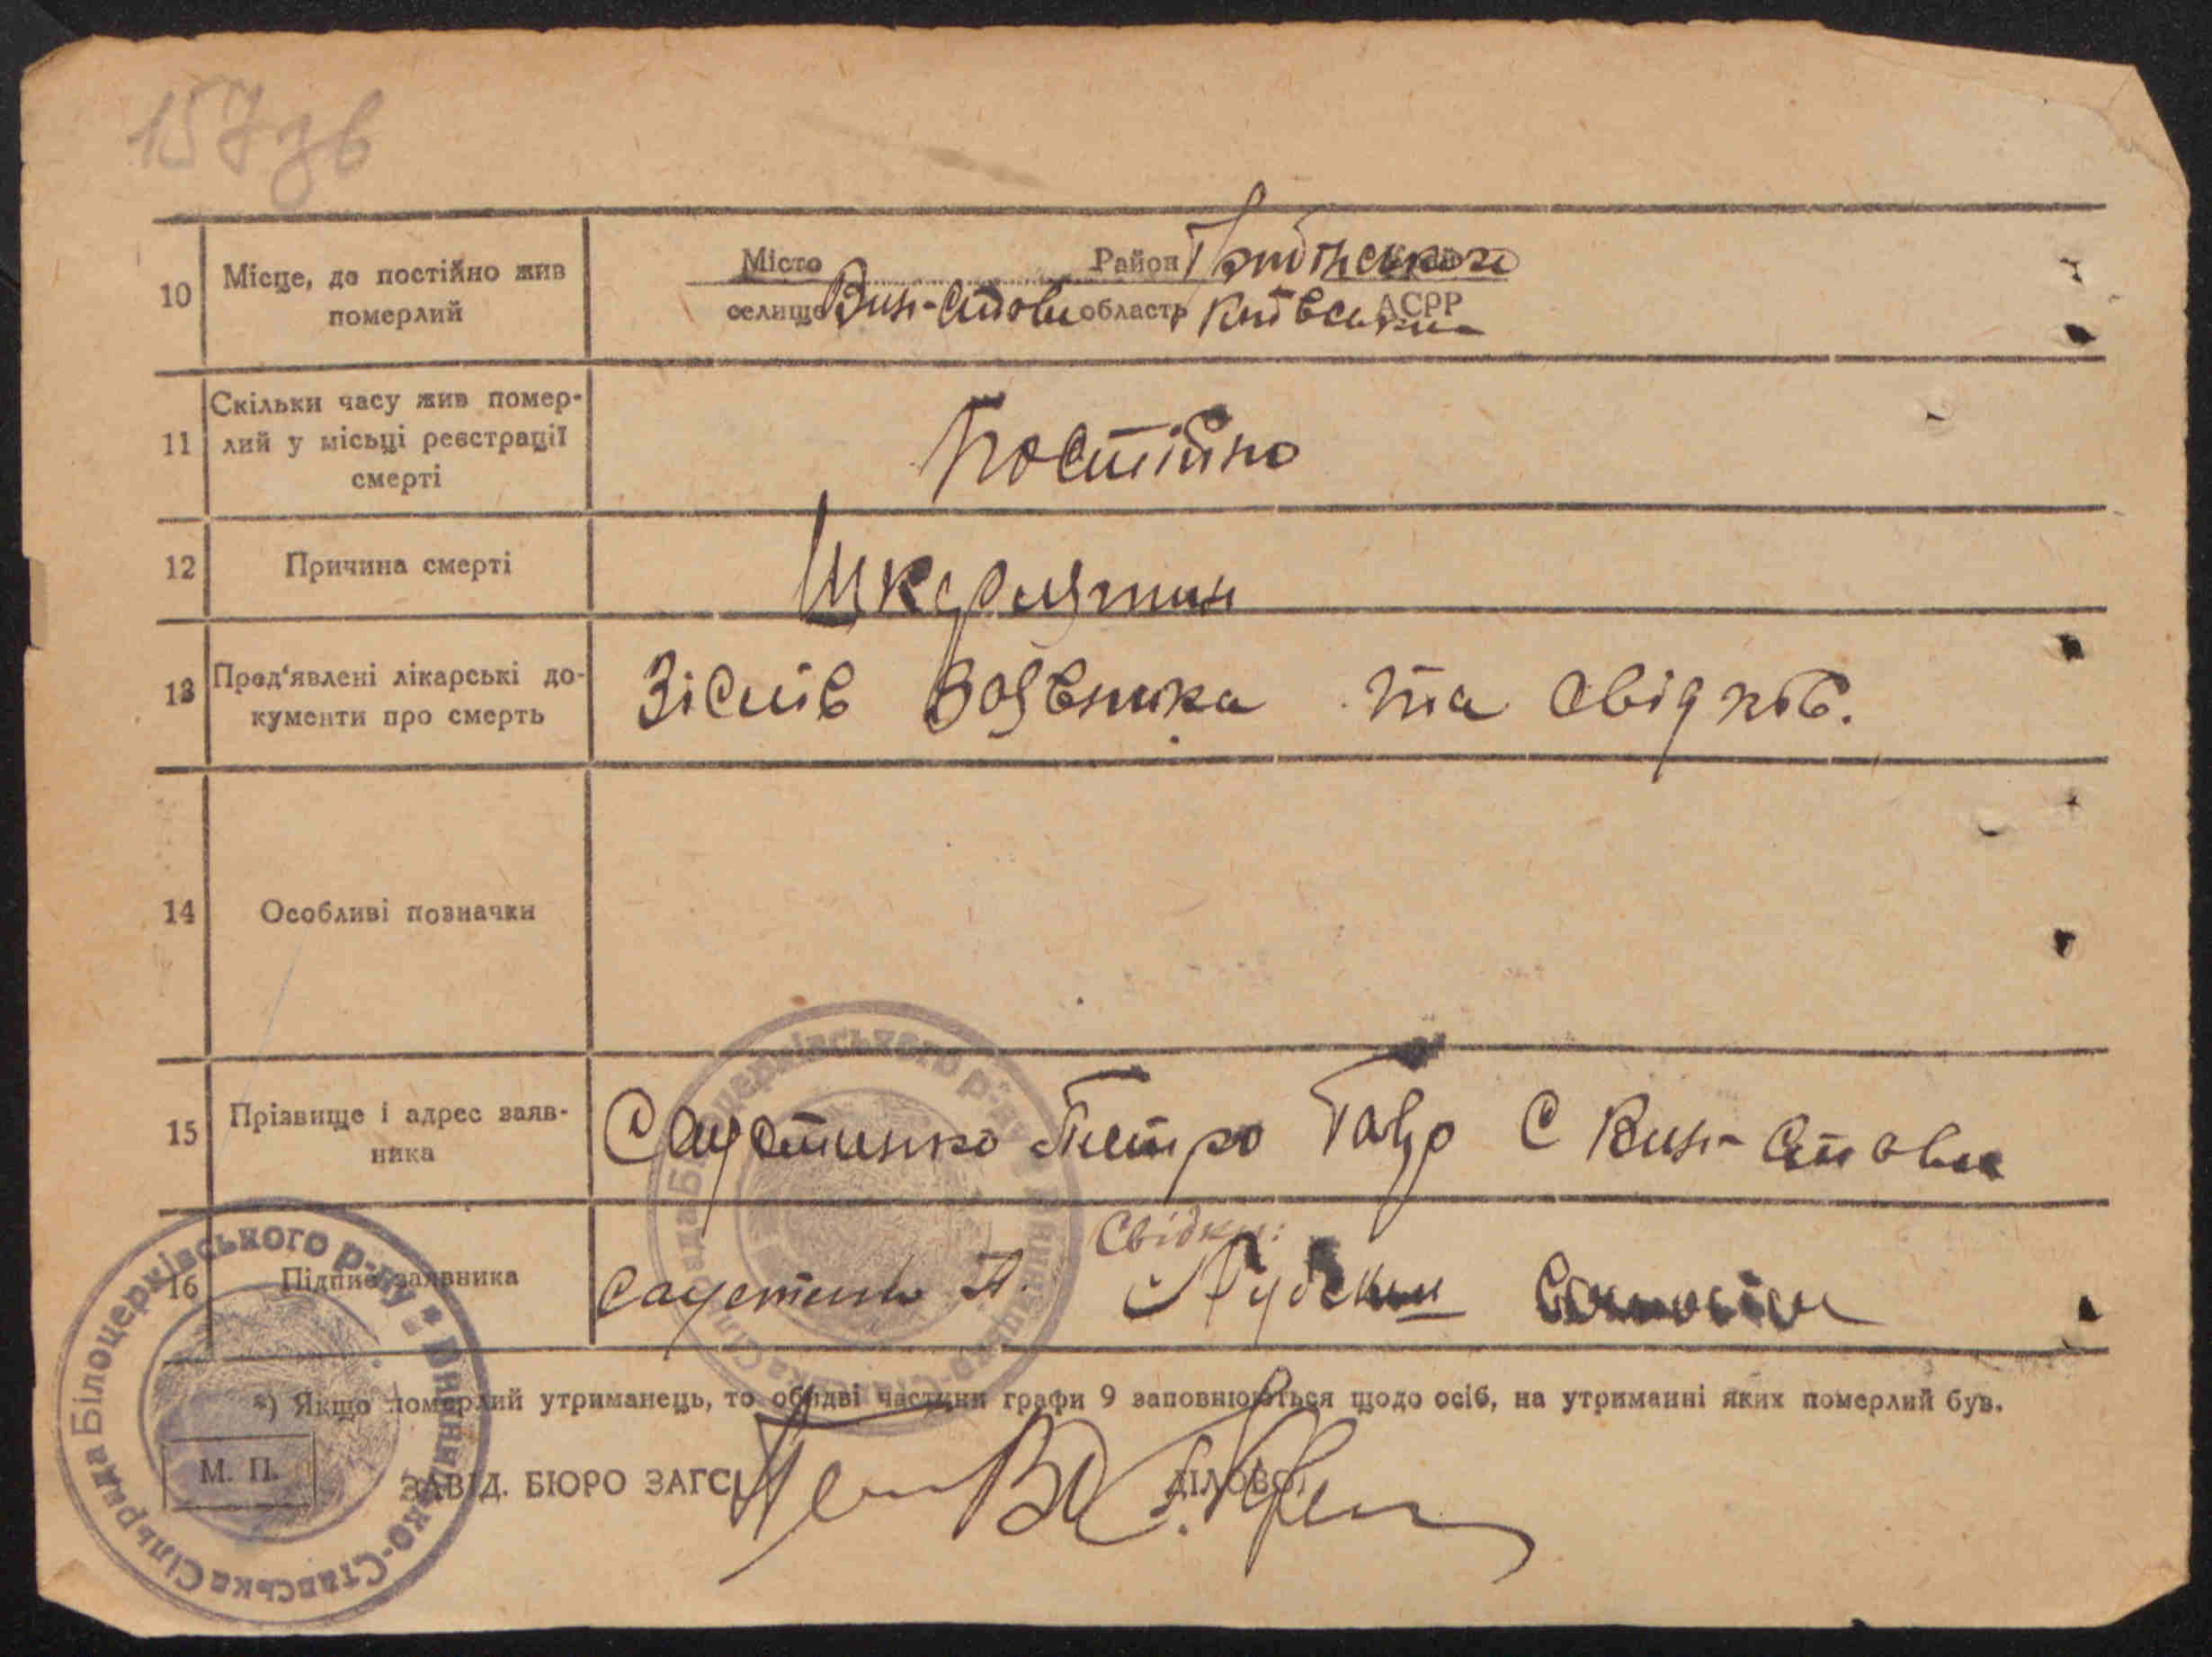 157 зв
10 Місце, де постійно жив померлий
Місто Район Гребінського
селище Вин-Стави область Київська АСРР
11 Скільки часу жив помер-
лий у місьці реєстрації
смерті
Постійно
12 Причина смерті
13 Пред'явлені лікарські до-
кументи про смерть
Зіслів та свідків.
14 Особливі позначки
15 Прізвище і адрес заяв-
ника
Петро С Вин-Стави
16 Підпис заявника
Свідки:
*) Якщо померлий утриманець, то обидві частини графи 9 заповнюються щодо осіб, на утриманні яких померлий був.
М. П.
ЗАВІД. БЮРО ЗАГС ДІЛОВОД
Сільрада Білоцерківського р-ну * Винницько-Ставська